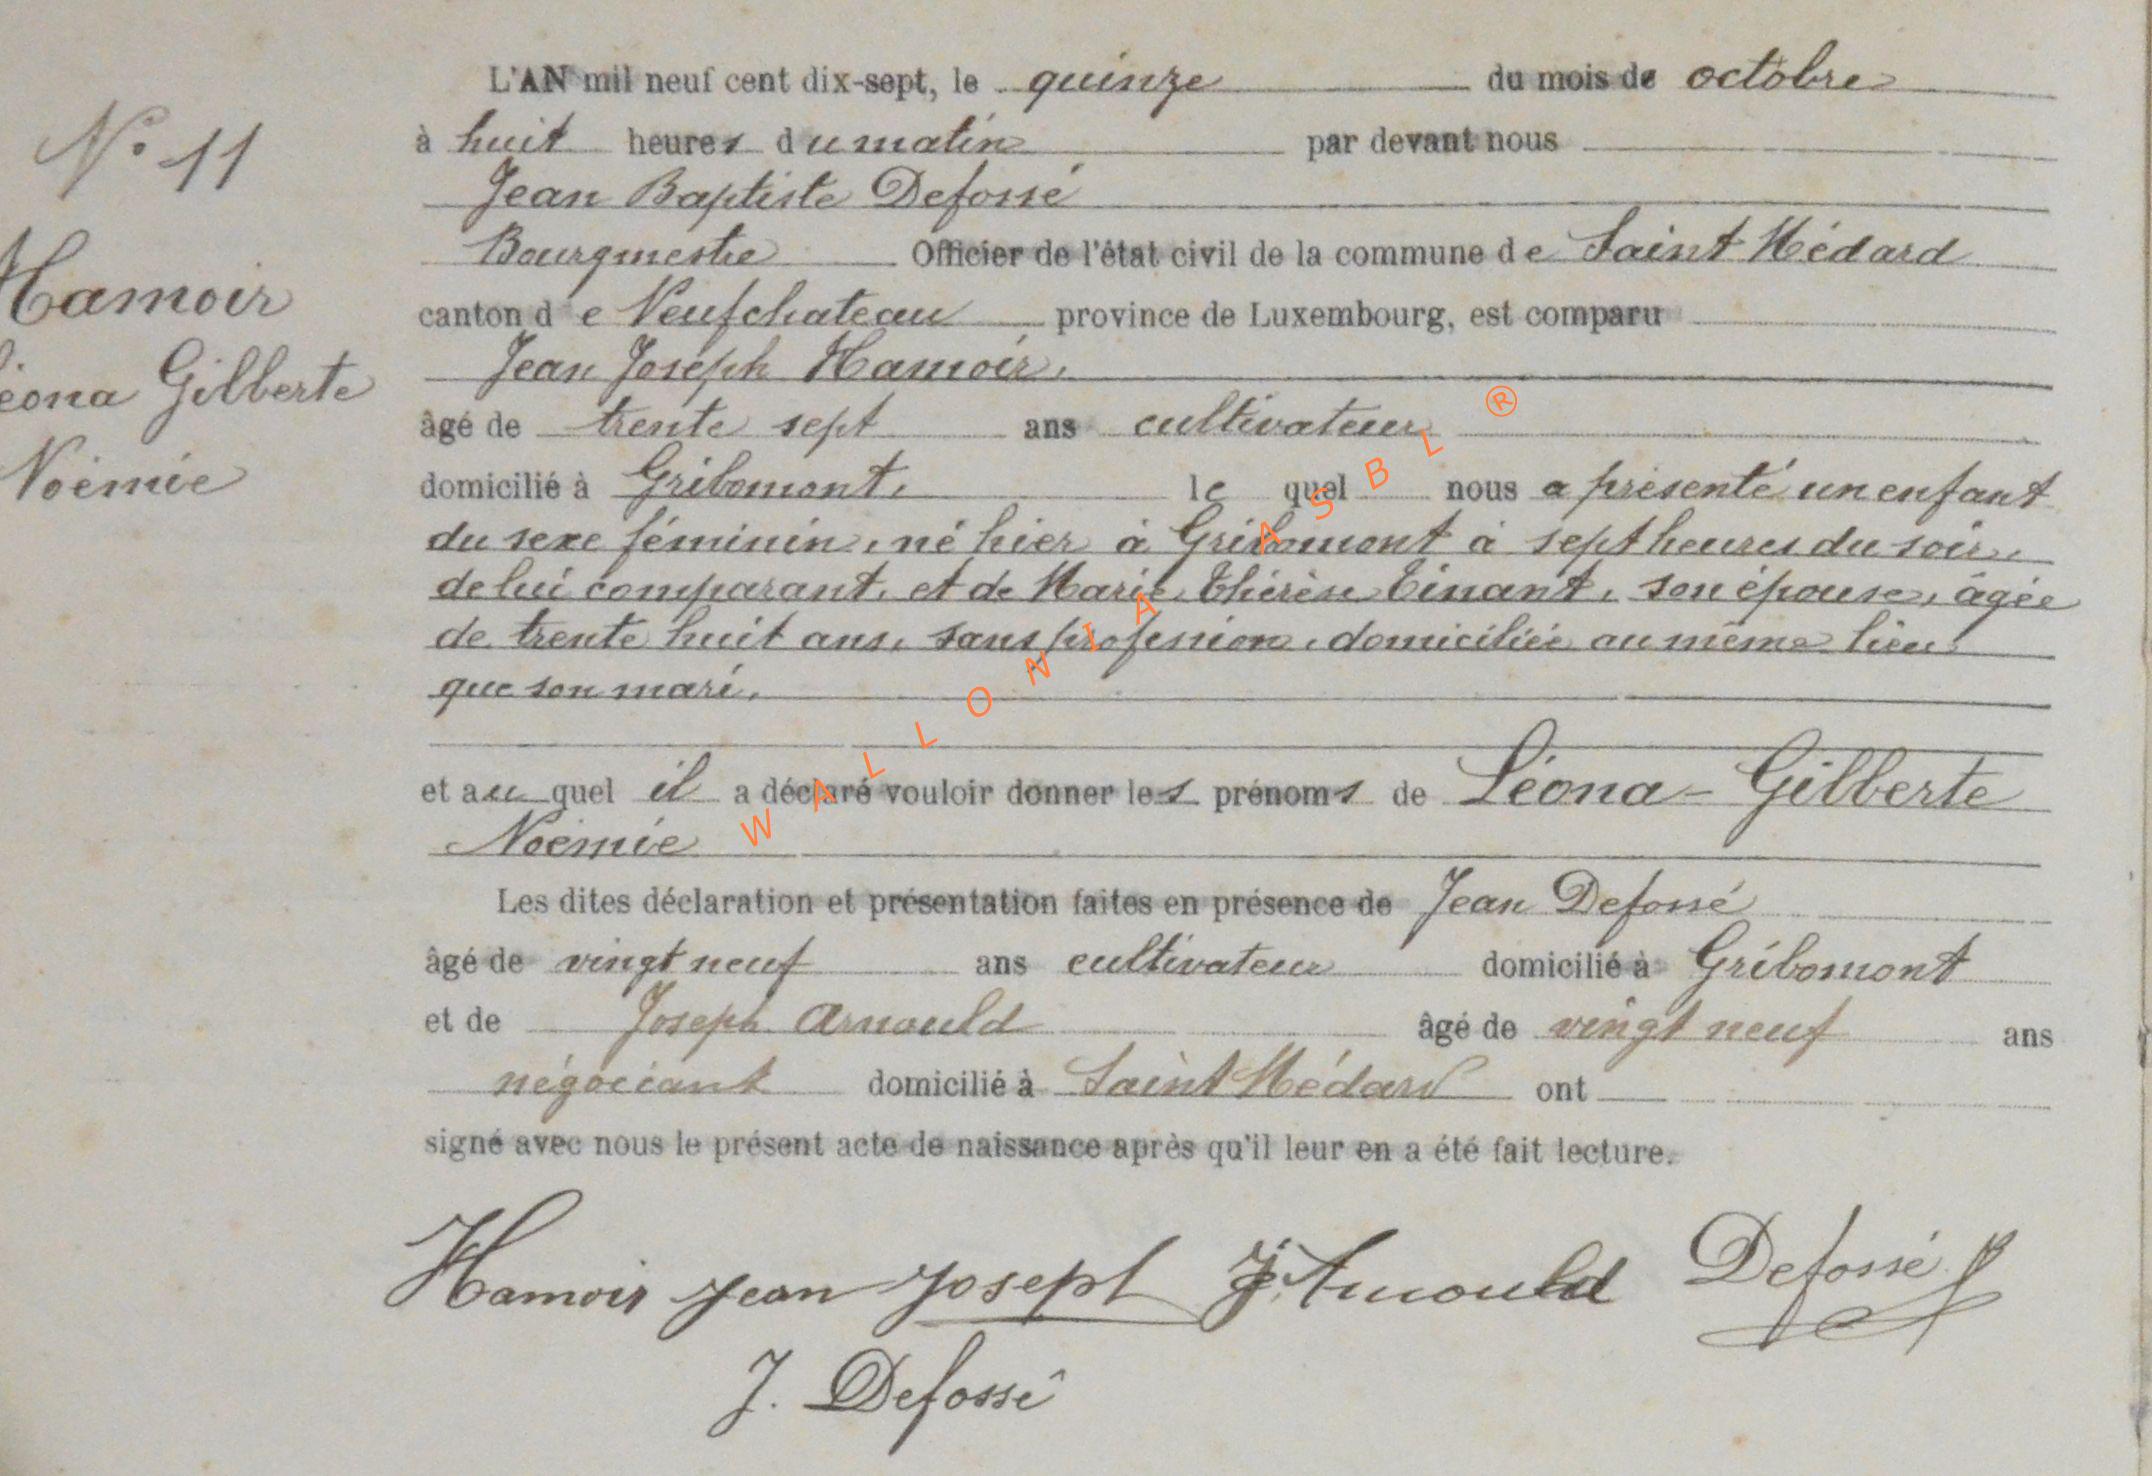 N° 11
Hamoir
Léona Gilberte
Noémie
L'AN mil neuf cent dix-sept, le quinze du mois de octobre
à huit heures du matin par devant nous
Jean Baptiste Defossé
Bourgmestre Officier de l'état civil de la commune de Saint Médard
canton de Neufchateau province de Luxembourg, est comparu
Jean Joseph Hamoir,
âgé de trente sept ans cultivateur
domicilié à Gribomont, le quel nous a présenté un enfant
du sexe féminin, né hier à Gribomont à sept heures du soir,
de lui comparant, et de Marie Thérèse Tinant, son épouse, âgée
de trente huit ans, sans profession, domiciliée au même lieu
que son mari,
et au quel il a déclaré vouloir donner les prénoms de Léona - Gilberte
Noémie
Les dites déclaration et présentation faites en présence de Jean Defossé
âgé de vingt neuf ans cultivateur domicilié à Gribomont
et de Joseph Arnould âgé de vingt neuf ans
négociant domicilié à Saint Médard ont
signé avec nous le présent acte de naissance après qu'il leur en a été fait lecture.
Hamoir Jean Joseph J. Arnould Defossé
J. Defossé
WALLONIA ASBL ®